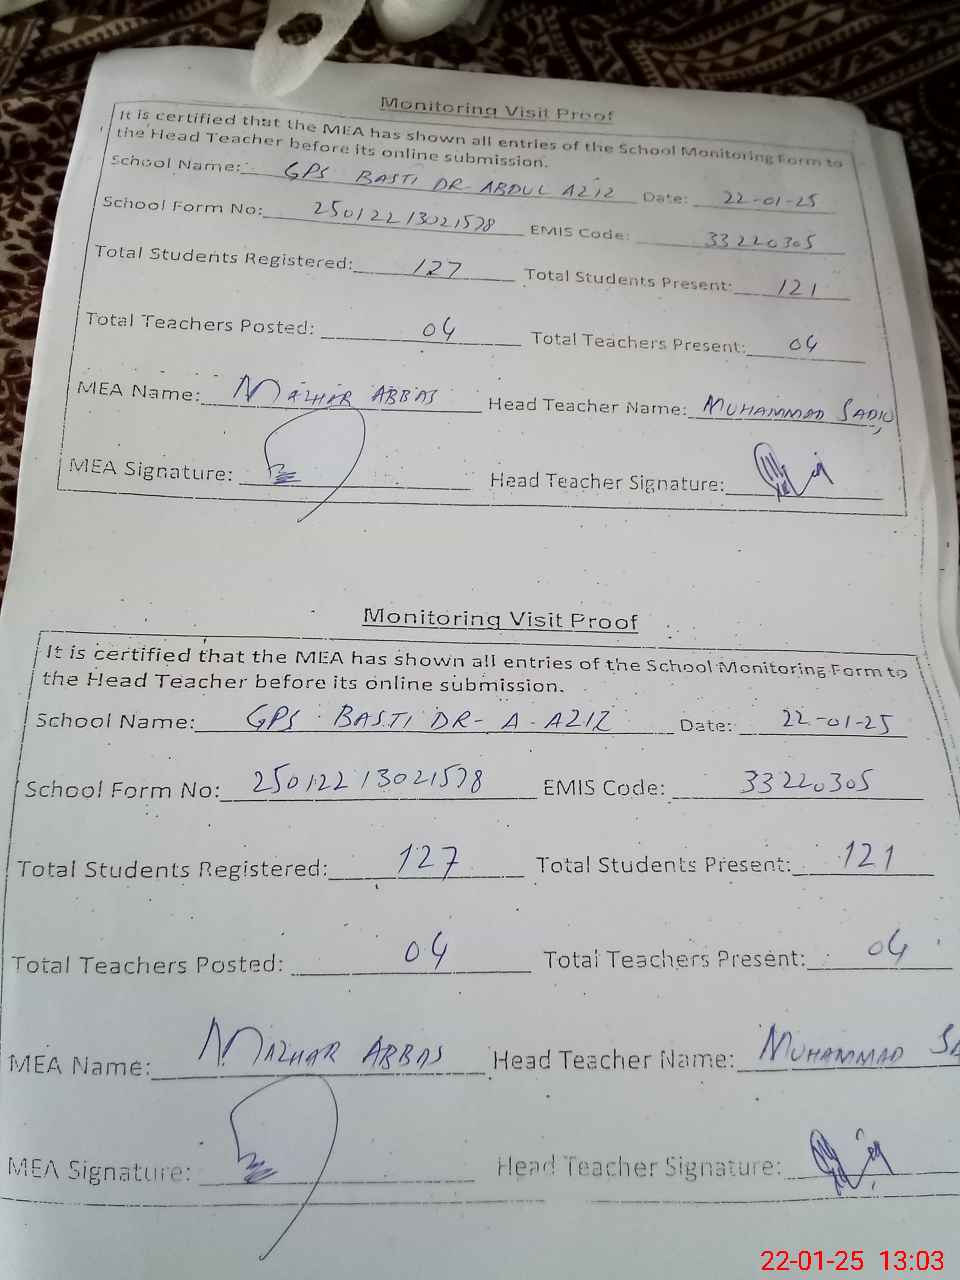 Monitoring Visit Proof
It is certified that the MEA has shown all entries of the School Monitoring Form to
the Head Teacher before its online submission.
School Name: GPS BASTI DR- ABDUL AZIZ Date: 22-01-25
School Form No: 25012213021578 EMIS Code: 33220305
Total Students Registered: 127 Total Students Present: 121
Total Teachers Posted: 04 Total Teachers Present: 04
MEA Name: MAZHAR ABBAS Head Teacher Name: MUHAMMAD SADIQ
MEA Signature: Head Teacher Signature:
Monitoring Visit Proof
It is certified that the MEA has shown all entries of the School Monitoring Form to
the Head Teacher before its online submission.
School Name: GPS BASTI DR- A- AZIZ Date: 22-01-25
School Form No: 25012213021578 EMIS Code: 33220305
Total Students Registered: 127 Total Students Present: 121
Total Teachers Posted: 04 Total Teachers Present: 04
MEA Name: MAZHAR ABBAS Head Teacher Name: MUHAMMAD SA
MEA Signature: Head Teacher Signature:
22-01-25 13:03